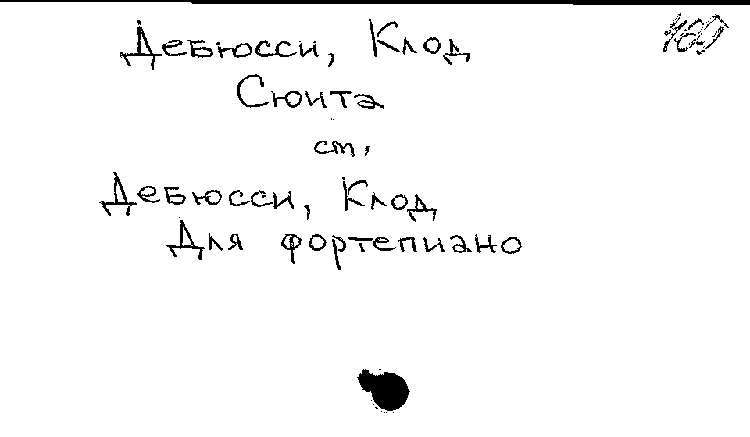 Дебюсси, Клод
Сюита
ст.
Дебюсси, Клод
Для фортепиано